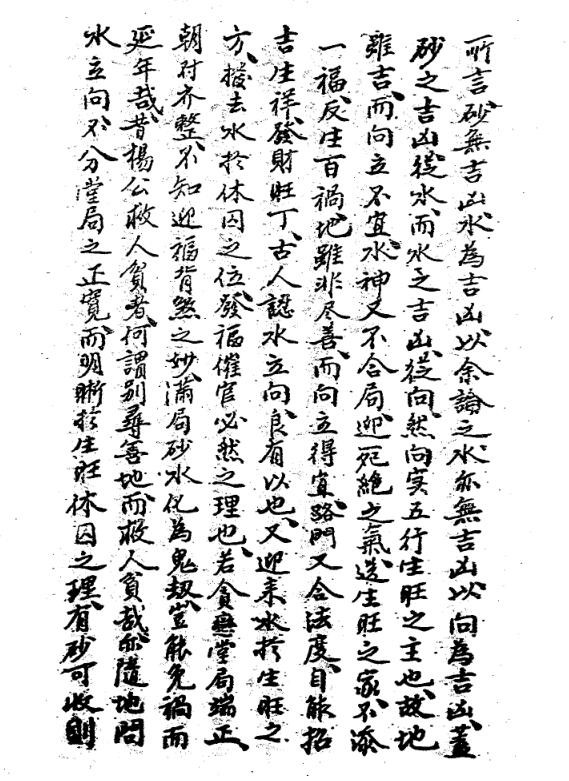 所言砂無吉凶水為吉凶以余論之水亦無吉凶以向為吉凶蓋
砂之吉凶從水而水之吉凶從向然向实五行生旺之主也故地
雖吉而向立不宜水神又不合局迎死絕之氣送生旺之家不添
一福反生百禍地雖非尽善而向立得宜路門又合法度自能招
吉生祥發財旺丁古人認水立向良有以也又迎来水於生旺之
方撥去水於休囚之位發福催官必然之理也若貪戀堂局端正
朝对齐整不知迎福背煞之妙滿局砂水化為鬼刼豈能免禍而
延年哉昔楊公救人貧者何謂别尋善地而救人貧哉亦隨地問
水立向不分堂局之正寬而明晣於生旺休囚之理有砂可收則